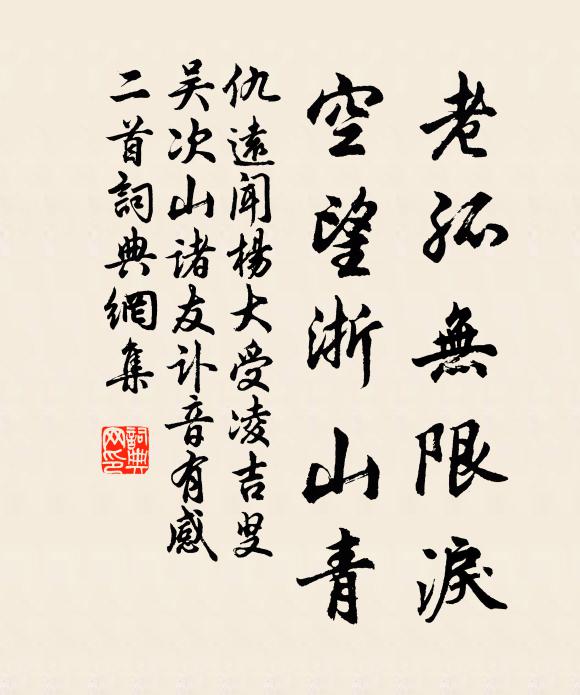 老孤無限淚
空望浙山青
仇遠聞楊大受凌吉叟
吴次山諸友訃音有感
二首詞典網集
詞典网印